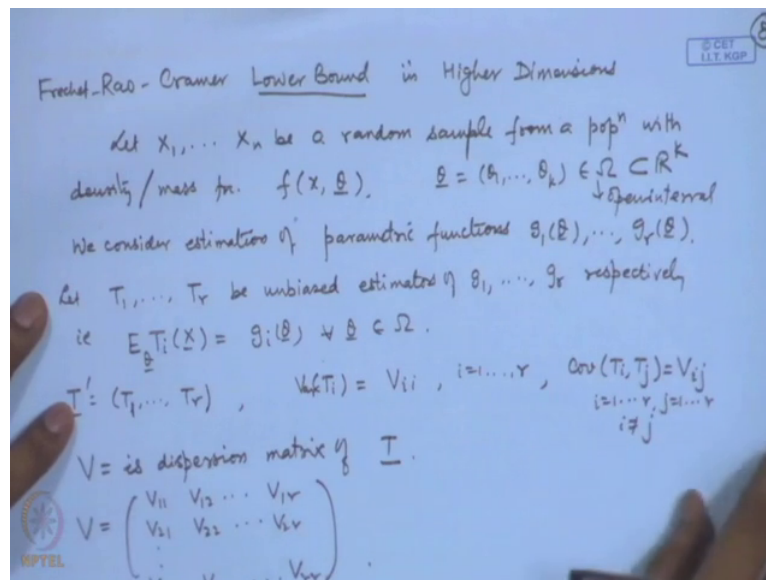 8
© CET
I.I.T. KGP
Frechet-Rao-Cramer Lower Bound in Higher Dimensions
Let X₁, ... Xₙ be a random sample from a popⁿ with
density/mass fn. f(x, θ). θ = (θ₁, ..., θₖ) ∈ Ω ⊂ ℝᵏ
↓ open interval
We consider estimation of parametric functions g₁(θ), ..., gᵣ(θ).
Let T₁, ..., Tᵣ be unbiased estimators of g₁, ..., gᵣ respectively
ie E_θ Tᵢ(X) = gᵢ(θ) ∀ θ ∈ Ω.
T' = (T₁, ... Tᵣ), Var(Tᵢ) = Vᵢᵢ, i=1...., r, Cov(Tᵢ, Tⱼ) = Vᵢⱼ
i=1... r, j=1... r
i≠j
V = is dispersion matrix of T.
V = ( V₁₁ V₁₂ ... V₁ᵣ
V₂₁ V₂₂ ... V₂ᵣ
⋮
Vᵣᵣ ) .
NPTEL